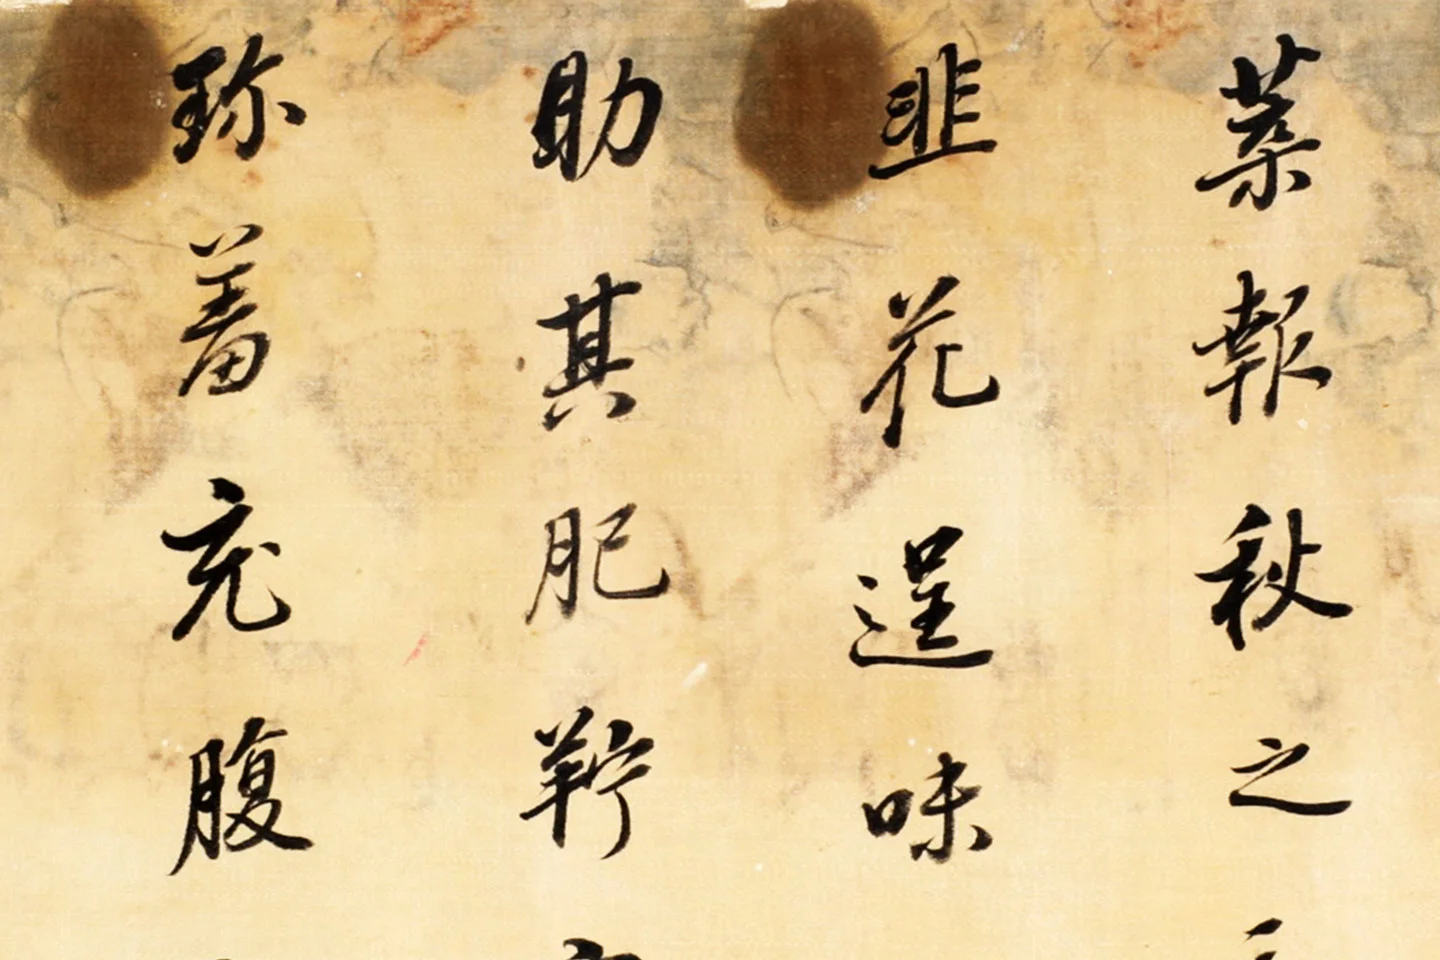 葉報秋之
韭花逞味
助其肥羜
珎羞充腹